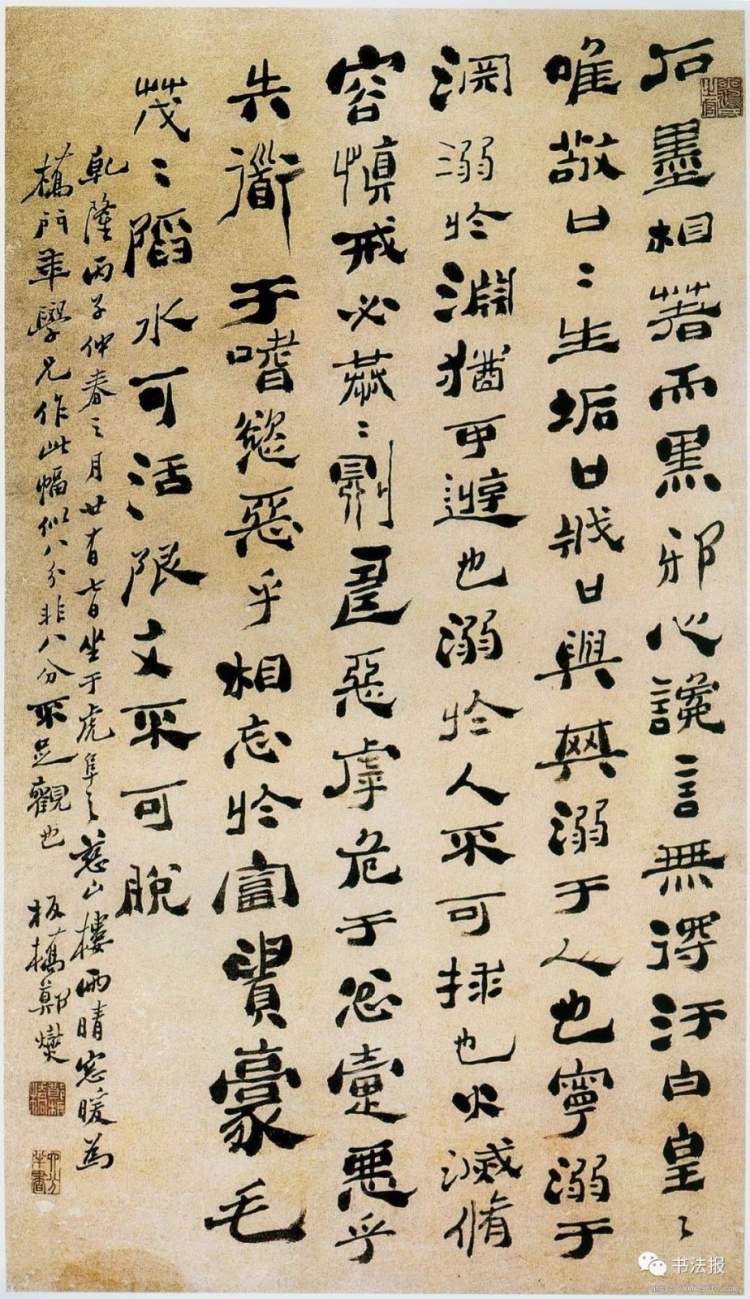 石墨相著而黑邪心讒言無得汙白皇〻
唯敬口〻生垢口戕口與其溺于人也寧溺于
淵溺於淵猶可遊也溺於人不可捄也火滅脩
容慎戒必恭〻則壽惡虖危于忿疐惡乎
失道于嗜慾惡乎相忘於富貴豪毛
茂〻陷水可活陷文不可脫
乾隆丙子仲春之月廿有七日坐于虎阜之山樓雨晴窓暖為
橋門年學兄作此幅似八分非八分不足觀也 板橋鄭燮
书法报